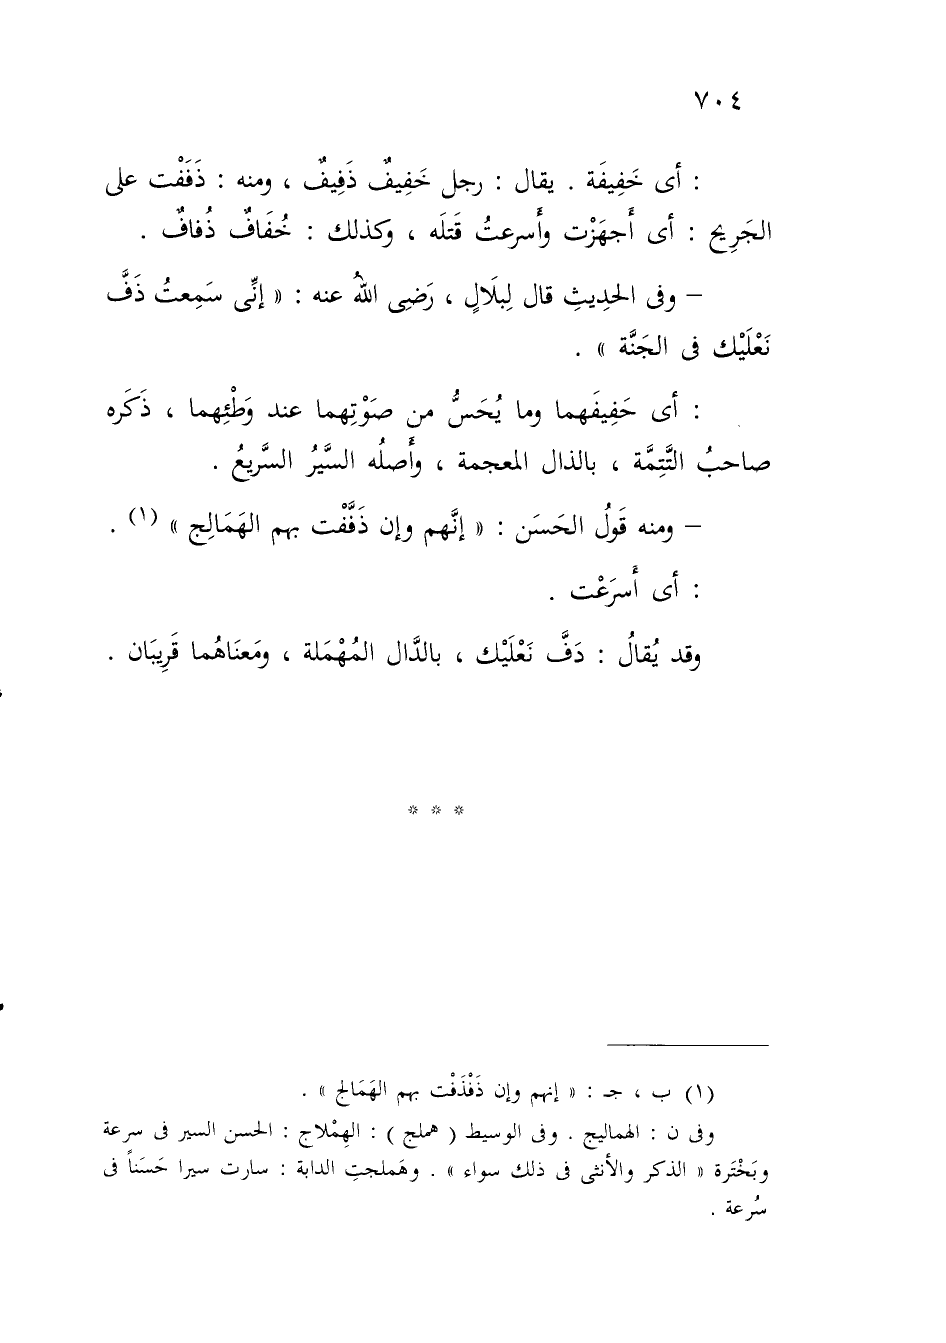 ٧٠٤
: أى خَفِيفَة . يقال : رجل خَفِيفٌ ذَفِيفٌ ، ومنه : ذَفَفْت على
الجَرِيح : أى أَجهَزْت وأَسرعتُ قَتلَه ، وكذلك : خُفَافٌ ذُفافٌ .
– وفى الحدِيثِ قال لِبلَالٍ ، رَضِى اللهُ عنه : « إنِّى سَمِعتُ ذَفَّ
نَعْلَيْك فى الجَنَّة » .
: أى حَفِيفَهما وما يُحَسُّ من صَوْتِهما عند وَطْئِهما ، ذَكَره
صاحبُ التَّتِمَّة ، بالذال المعجمة ، وأَصلُه السَّيْرُ السَّريعُ .
– ومنه قَولُ الحَسَن : « إنَّهم وإن ذَفَّفْت بهم الهَمَالِج » (١) .
: أى أَسرَعْت .
وقد يُقالُ : دَفَّ نَعْلَيْك ، بالدَّال المُهْمَلة ، ومَعنَاهُما قَرِيبَان .
* * *
(١) ب ، جـ : « إنهم وإن ذَفْذَفْت بهم الهَمَالج » .
وفى ن : الهماليج . وفى الوسيط ( هملج ) : الهِمْلاج : الحسن السير فى سرعة
وبَخْتَرة « الذكر والأنثى فى ذلك سواء » . وهَملجتِ الدابة : سارت سيرا حَسَناً فى
سُرعة .